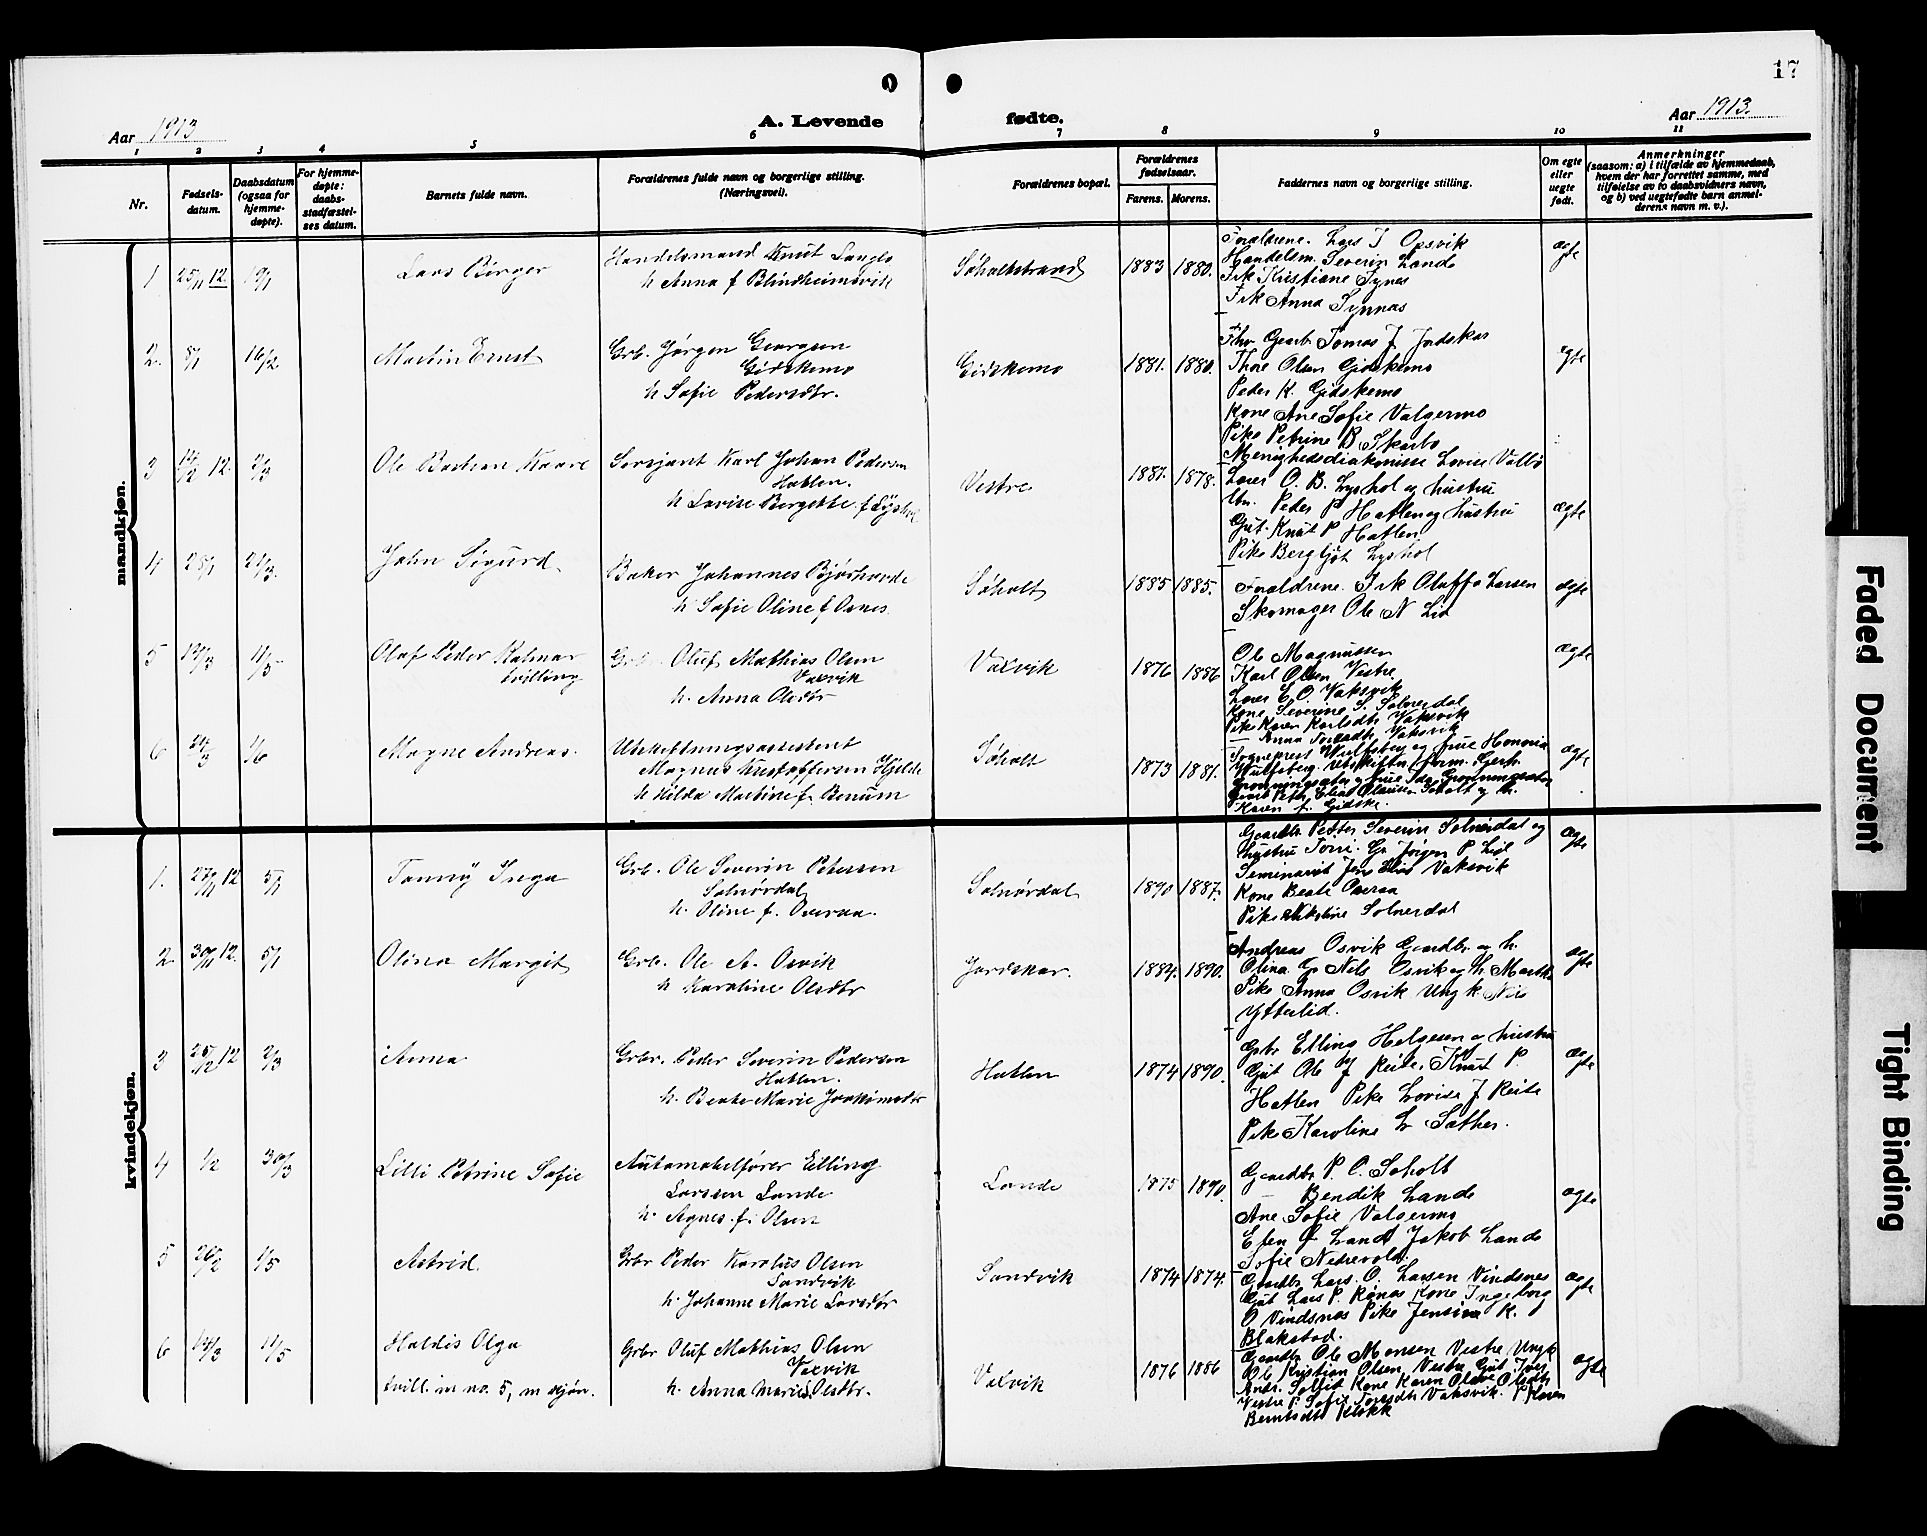 17
Aar 1913
A. Levende
fødte.
Aar 1913.
1 2 3 4 5 6 7 8 9 10 11
Nr.
Fødsels-
datum.
Daabsdatum
(ogsaa for
hjemme-
døpte).
For hjemme-
døpte:
daabs-
stadfæstel-
ses datum.
Barnets fulde navn.
Forældrenes fulde navn og borgerlige stilling.
(Næringsvei).
Forældrenes bopæl.
Forældrenes
fødselsaar.
Farens. Morens.
Faddernes navn og borgerlige stilling.
Om egte
eller
uegte
født.
Anmerkninger
(saasom: a) i tilfælde av hjemmedaab,
hvem der har forrettet samme, med
tilføielse av to daabsvidners navn,
og b) ved uegtefødte barn anmel-
derens navn m. v.).
mandkjøn.
1 25/11 12. 19/1
Lars Birger
Handelsmand Knut Langlo
h Anna f Blindheimsvik
Søholtstrand
1883 1880.
Forældrene. Lars J Opsvik
Handelsm. Severin Lande
Frk Kristiane Tynes
Frk Anna Synnas
ægte
2. 8/1 16/2
Martin Ernst
Grb. Jørgen Georgsen
Gidskemo
h Sofie Pedersdtr.
Gidskemo
1881. 1880.
Fhv Gaarb Tomas J Jordskar
Thore Olsen Gidskemo
Peder K. Gidskemo
Kone Ane Sofie Valgermo
Pike Petrine B. Skarbo
ægte
3 14/12 12. 2/3
Ole Bastian Kaare
Sersjant Karl Johan Pedersen
Hatlen.
h Lovise Bergitte f Lyshol
Vestre
1881. 1878.
Menighedsdiakonisse Lovise Valbø
Lærer O. B. Lyshol og hustru
Peder P Hatlen og hustru
Gut. Knut P Hatlen
Pike Bergljot Lyshol
ægte
4 25/1 21/3.
John Sigurd
Baker Johannes Bjørhovde
h. Sofie Oline f Osnes.
Søholt
1885 1885.
Forældrene. Frk Oluffa Larsen
Skomager Ole N Lid
ægte
5 13/3 11/5
Olaf Peder Kalmar
tvilling
Grb. Oluf Mathias Olsen
Vaxvik
h. Anna Olsdtr
Vaxvik
1876 1886
Ole Magnussen
Karl Olsen Vestre
Lærer E. O. Vaksvik
Kone Severine S. Solnerdal
Pike Karen Karlsdtr Vaksvik
— Anna Toresdtr Vaksvik
ægte
6 24/3 1/6
Magne Andreas.
Utskiftningsassistent
Magnus Kristoffersen Hjelde
h Hilda Martine f. Benum
Søholt
1873 1881.
Sogneprest Wulfsberg og frue Honoria
Karen f. Gidske.
ægte
kvindekjøn.
1. 27/11 12 5/1
Fanny Inga
Grb. Ole Severin Petersen
Solnørdal
h. Oline f. Overaa.
Solnørdal
1890 1887.
Gaardbr Petter Severin Solnerdal og
hustru Torri. Gr Jørgen P Lid
Seminarist Jens Elias Vaksvik
Kone Beate Overaa
Pike Nikoline Solnerdal
ægte
2 30/11 12. 5/1
Olina Margit
Grb. Ole A. Osvik
h Karoline Olsdtr
Jordskar.
1884. 1890.
Andreas Osvik Gaardbr. og h.
Olina. Gr Nils Osvik og h. Marthe
Pike Anna Osvik Ung k. Nils
Ytterlid.
ægte
3 25/12 12 2/3
Anna
Grbr. Peder Severin Pedersen
Hatlen.
h. Beate Marie Joakimsdtr
Hatlen
1874 1890.
Gbr Elling Helgesen og hustru
Gut Ole J Reite. Knut P.
Hatlen Pike Lovise J Reite
Pike Karoline Sr Sæther.
ægte
4 1/2 30/3
Lilli Petrine Sofie
Automobilfører Elling
Larssen Lande
h. Agnes f. Olsen
Lande
1875 1890.
Gaardbr P. O. Soholt
Bendik Lande
Ane Sofie Valgermo
Jakob Lande
Sofie Nedrevold.
ægte
5 26/2 1/5
Astrid.
Grbr Peder Karolus Olsen
Sandvik
h. Johanne Marie Larsdtr
Sandvik
1874 1874.
Gaardbr Lars. O. Larsen Vindsnes
Gut Lars P. Rønes Kone Ingeborg
O Vindsnes Pike Jensine K.
Blakstad.
ægte
6 13/3 11/5
Haldis Olga
tvill. m no. 5, m kjøn.
Grbr Oluf Mathias Olsen
Vaxvik
h. Anna Marie Olsdtr.
Vaxvik
1876 1886
Gaardbr Ole Monsen Vestre Ungk
Ole Kristian Olsen Vestre Gut Iver
Andr. Sollid Kone Karen Olave Olsdtr
Vestre P. Sofie Toresdtr Vaksvik. P Karen
Berntsdtr Klokk
ægte
Faded Document
Tight Binding